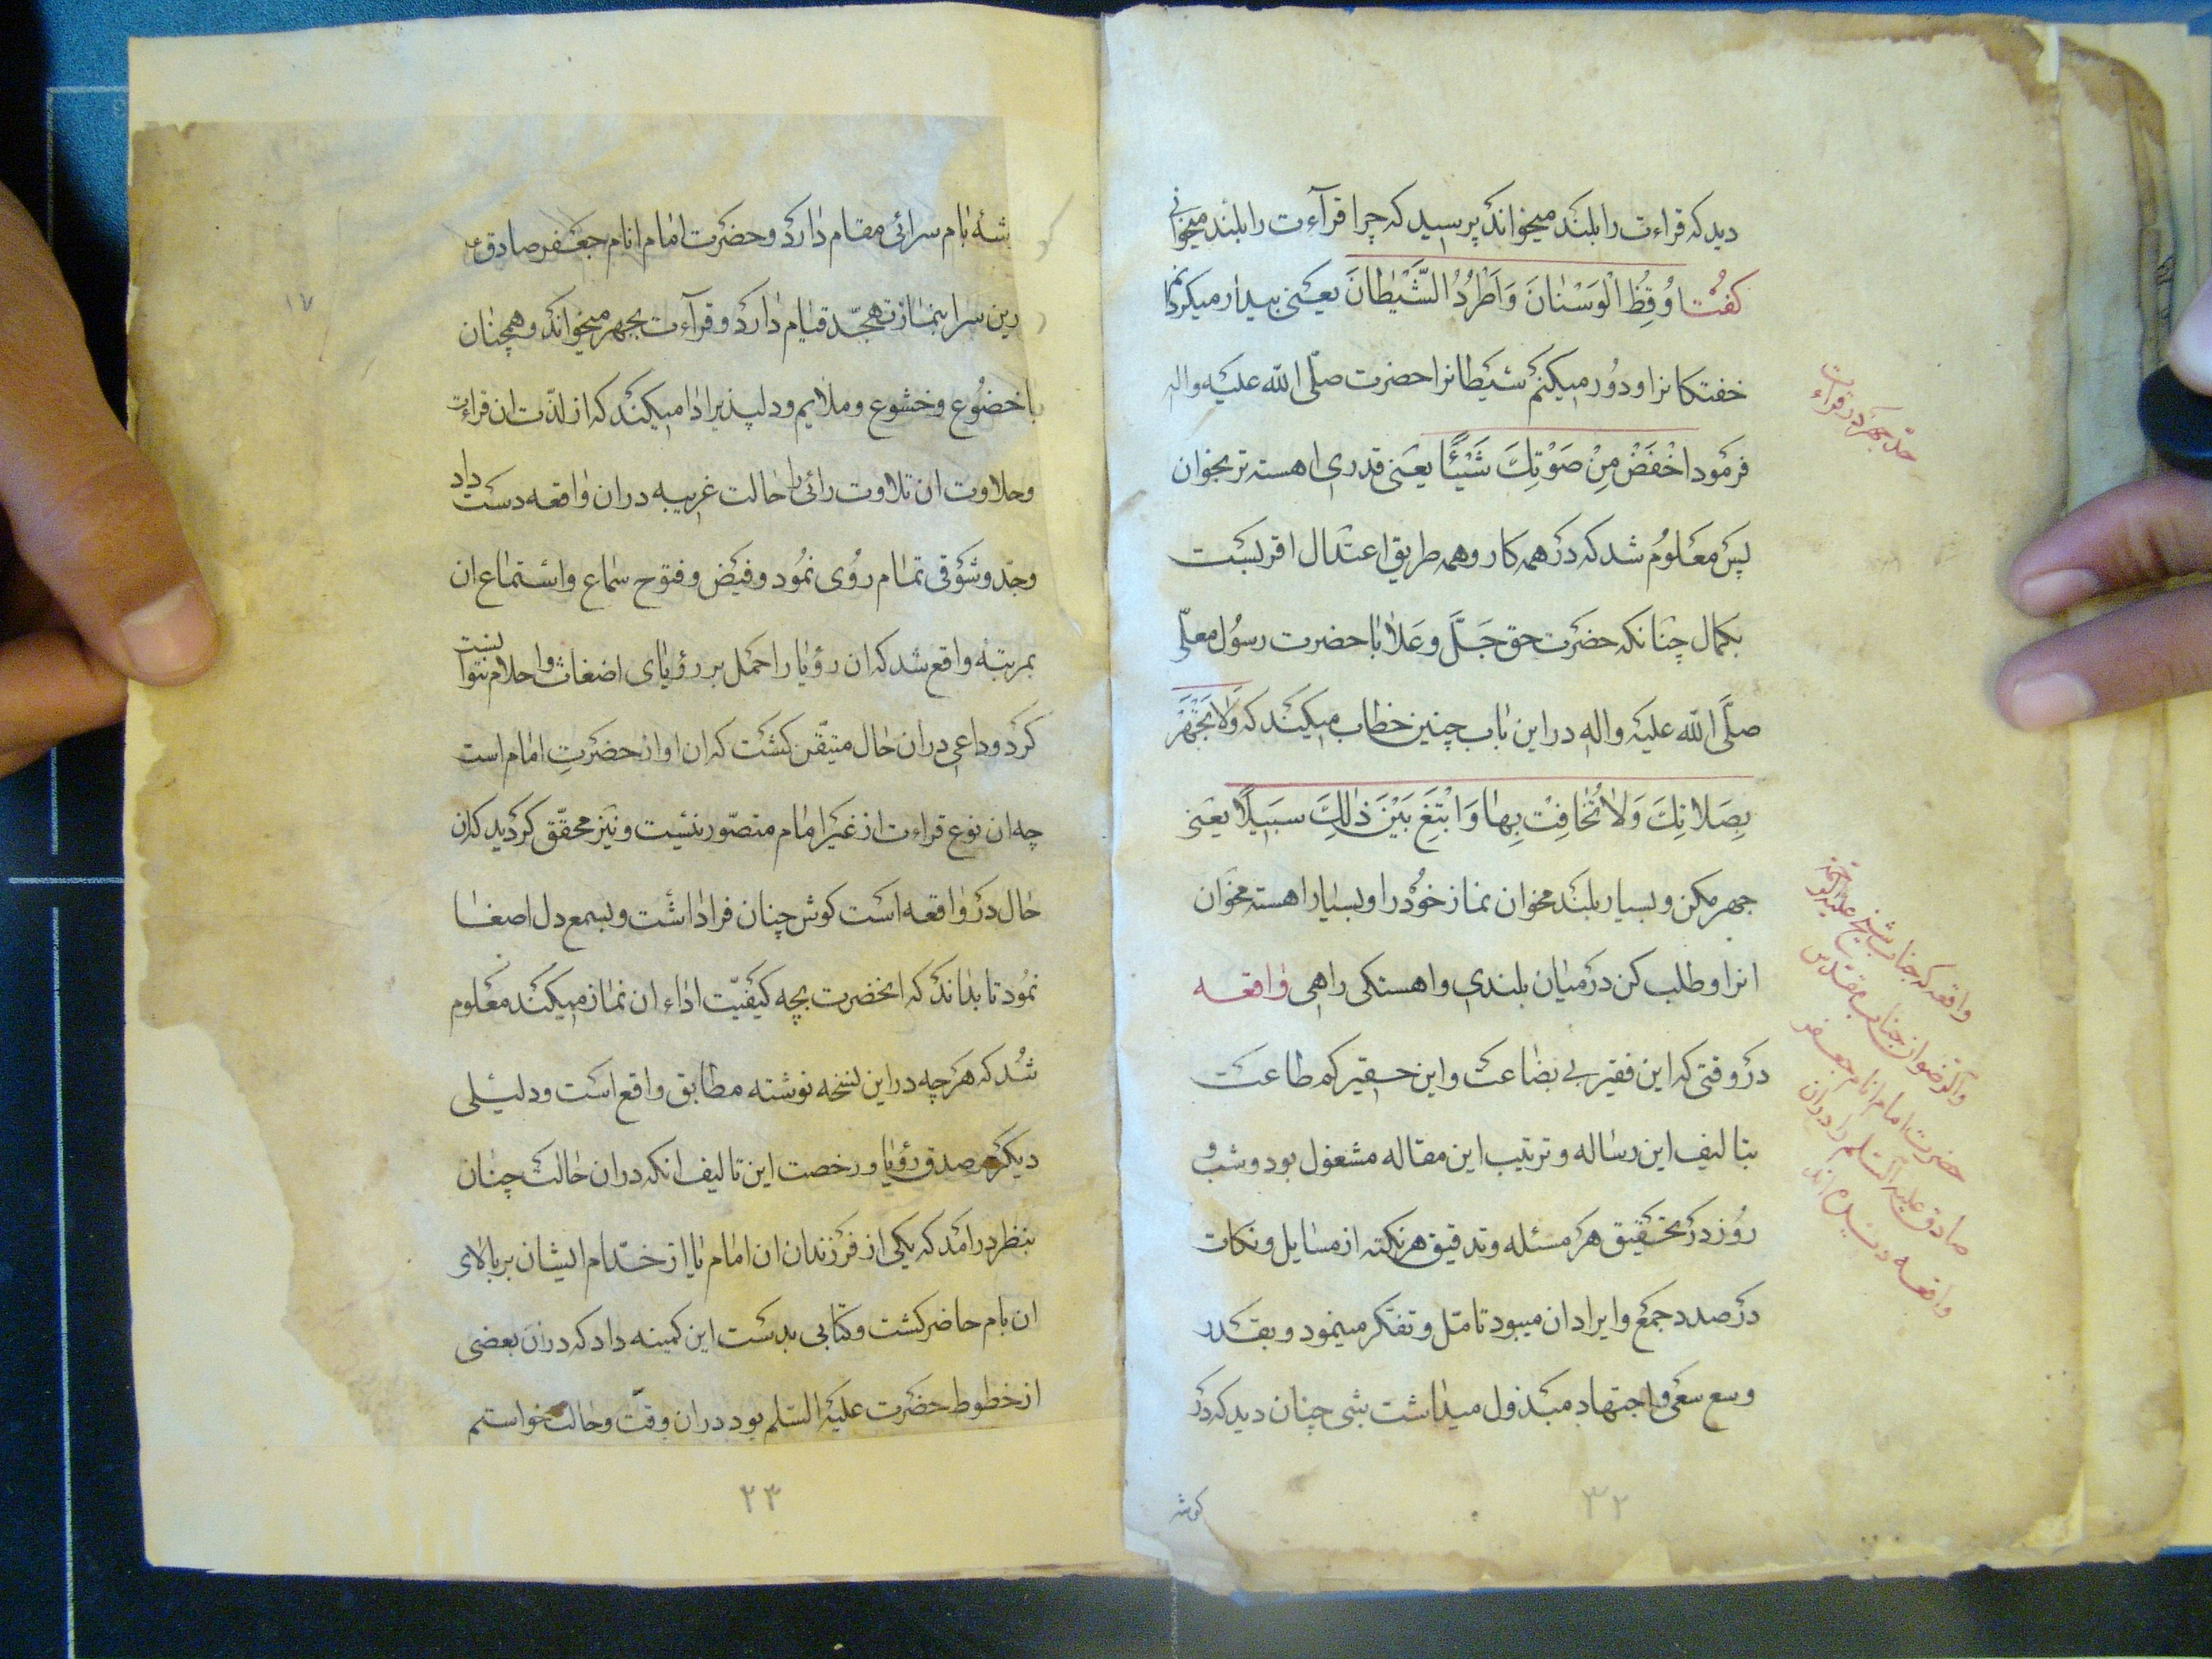 دید که قراءت را بلند میخواند پرسید که چرا قرآءت را بلند میخوانی
کفت اُوقِظُ الْوَسْنانَ وَاَطْرُدُ الشَّیْطانَ یعنی بیدار میکردانم
خفتکانرا و دُور میکنم شیطانرا حضرت صلّی اللّه علیه واله
فرمود اخْفَضْ مِنْ صَوْتِكَ شَیْئًا یعنی قدری اهسته تر بخوان
پس معلوُم شد که در همه کار و همه طریق اعتدال اقربست
بکمال چنانکه حضرت حق جَلَّ وعَلا باحضرت رسوُل معلّی
صلَّی اللّه علیه واله در این باب چنین خطاب میکند که وَلاتَجْهَرْ
بِصَلاتِكَ وَلاتُخافِتْ بِها وَابْتَغِ بَیْنَ ذٰلِكَ سَبیلًا یعنی
جهر مکن و بسیار بلند مخوان نماز خوُد را و بسیار اهسته مخوان
انرا و طلب کن در میان بلندی و اهستکی راهی واقعه
در وقتی که این فقیر بی بضاعت و این حقیر کم طاعت
بتالیف این رساله و ترتیب این مقاله مشغول بود و شب و
روُز در تحقیق هر مسئله و تدقیق هر نکته از مسایل و نکات
در صدد جمع و ایراد ان میبود تامّل و تفکّر مینمود و بقدر
وسع سعی و اجتهاد مبذول میداشت شبی چنان دید که در
کوشه
٣٢
حدّ جهر در قراءت
واقعه که جناب شیخ علیه الرحمة
والرضوان جناب مقدس
حضرت امام انام جعفر
صادق علیه السّلم را در ان
واقعه دیده اند
شهٔ بام سرائی مقام دارد و حضرت امام انام جعفر صادق ع
رین سرا بنماز تهجّد قیام دارد و قرآءت بجهر میخواند و همچنان
باخضوُع و خشوع و ملایم و دلپذیر ادا میکند که از لذّت ان قراءت
و حلاوت ان تلاوت رائی را حالت غریبه در ان واقعه دست داد
وجد و شوقی تمام روُی نموُد و فیض و فتوح سماع و استماع ان
بمرتبهٔ واقع شد که ان رؤیا را حمل بر رؤیای اضغاث و احلام نتوانست
کرد و داعی در ان حال متیقّن کشت که ان اواز حضرتِ امام است
چه ان نوع قراءت از غیر امام متصّور نیست و نیز محقّق کردید که ان
حال در واقعه است کوش چنان فرا داشت و بسمع دل اصغا
نموُد تا بداند که انحضرت بچه کیفیّت اداء ان نماز میکند معلوم
شُد که هر چه در این نسخه نوشته مطابق واقع است و دلیلی
دیکر بر صدق رؤیا و رخصت این تالیف انکه در ان حالت چنان
بنظر درامد که یکی از فرزندان ان امام یا از خدّام ایشان بر بالای
ان بام حاضر کشت و کتابی بدست این کمینه داد که در ان بعضی
از خطوط حضرت علیه السّلم بود در ان وقت و حالت خواستم
٣٣
١٧